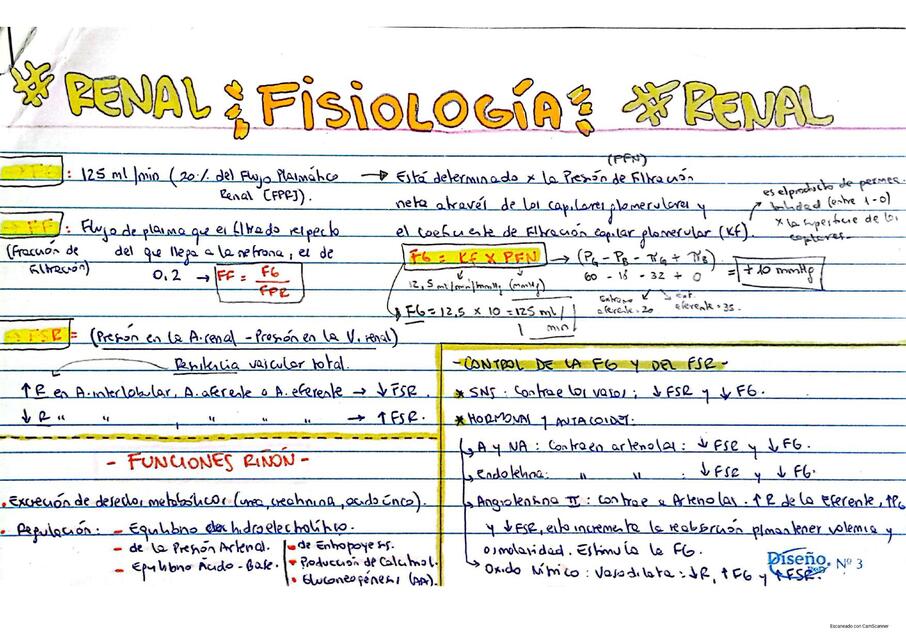 # RENAL FISIOLOGÍA # RENAL
: 125 ml/min (20% del Flujo Plasmático Renal [FPR]).
→ Está determinado x la Presión de Filtración (PFN)
neta através de los capilares glomerulares y
el coeficiente de Filtración capilar glomerular (Kf).
es el producto de permea
bilidad (entre 1-0)
x la superficie de los
capilares.
FF : Flujo de plasma que el filtrado respecto
(fracción de filtración) del que llega a la nefrona, el de
0,2 → FF = FG / FPR
FG = Kf x PFN → (PG - PB - πG + πB) = +10 mmHg
60 - 18 - 32 + 0
12,5 ml/min/mmHg (mmHg)
Extremo aferente = 20
Ext. eferente = 35.
FG = 12,5 x 10 = 125 ml/min
FSR = (Presión en la A. renal - Presión en la V. renal)
Resistencia vascular total.
↑R en A. interlobular, A. aferente o A. eferente → ↓FSR.
↓R " " , " " " → ↑FSR.
- FUNCIONES RIÑÓN -
• Excreción de desechos metabólicos (urea, creatinina, ácido úrico).
• Regulación: - Equilibrio hidroelectrolítico.
- de la Presión Arterial.
- Equilibrio Ácido-Base.
• de Eritropoyesis.
• Producción de Calcitriol.
• Gluconeogénesis (AA).
- CONTROL DE LA FG Y DEL FSR -
* SNS: Contrae los vasos; ↓ FSR y ↓ FG.
* HORMONAS Y AUTACOIDES:
A y NA: Contraen arteriolas: ↓ FSR y ↓ FG.
Endotelina: " " : ↓ FSR y ↓ FG.
Angiotensina II: contrae a Arteriolas. ↑R de la eferente, ↑PG
y ↓FSR, esto incrementa la reabsorción p/mantener volemia y
osmolaridad. Estimula la FG.
Oxido Nítrico: Vasodilata: ↓R, ↑FG y ↑FSR.
Diseño. Nº 3
Escaneado con CamScanner